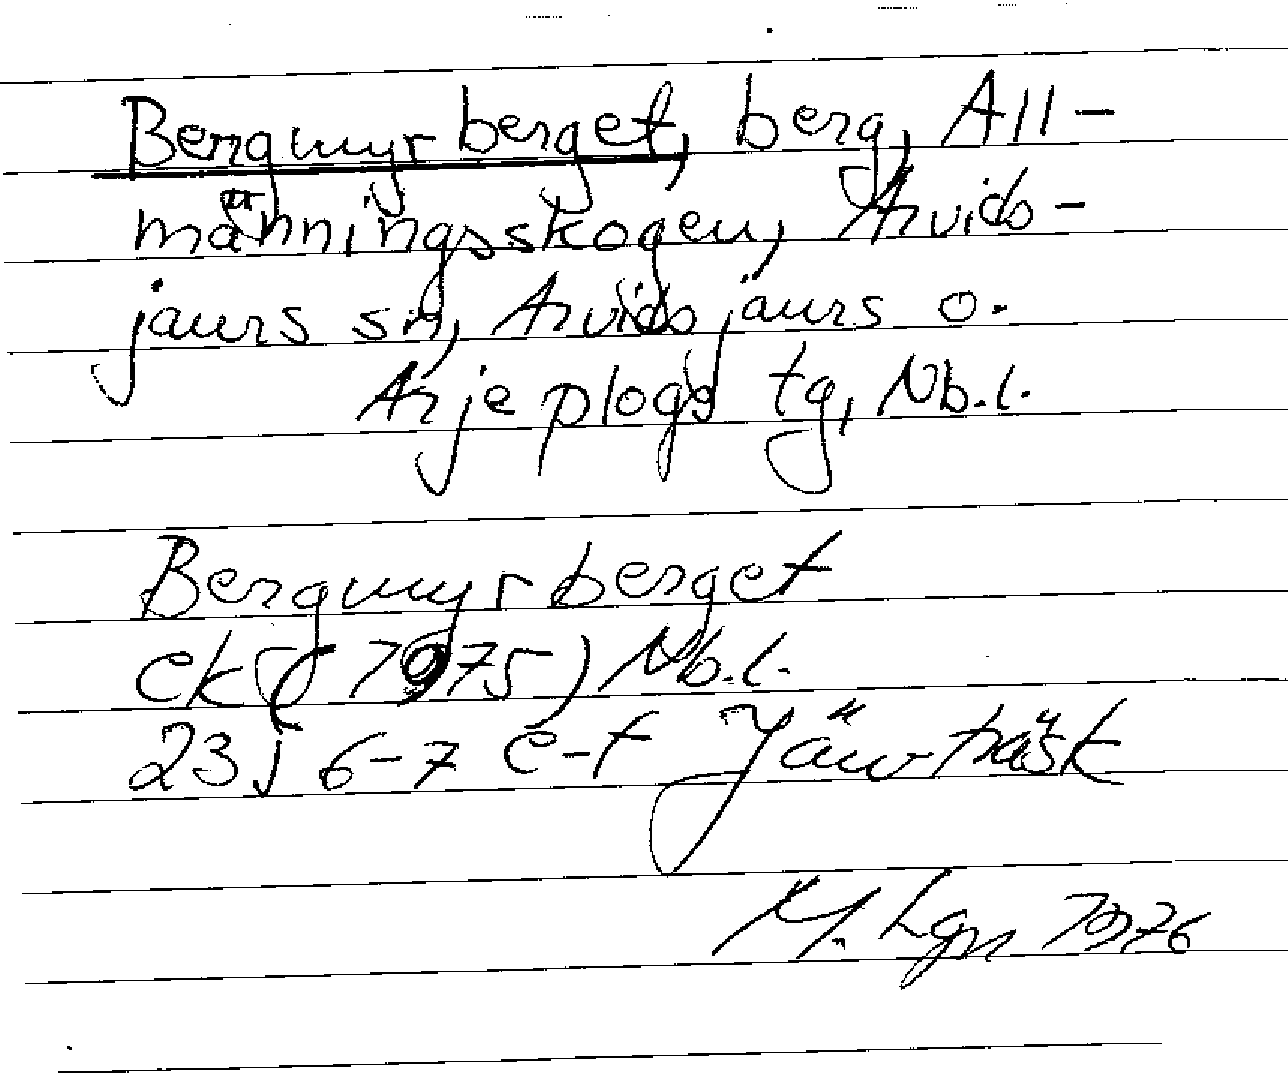 Bergmyrberget, berg, All-
männingsskogen, Arvids-
jaurs sn, Arvidsjaurs o.
Arjeplogs tg, Nb.l.
Bergmyrberget
ek (1975) Nb.l.
23j 6-7 e-f Jäwträsk
M. Lgn 1976